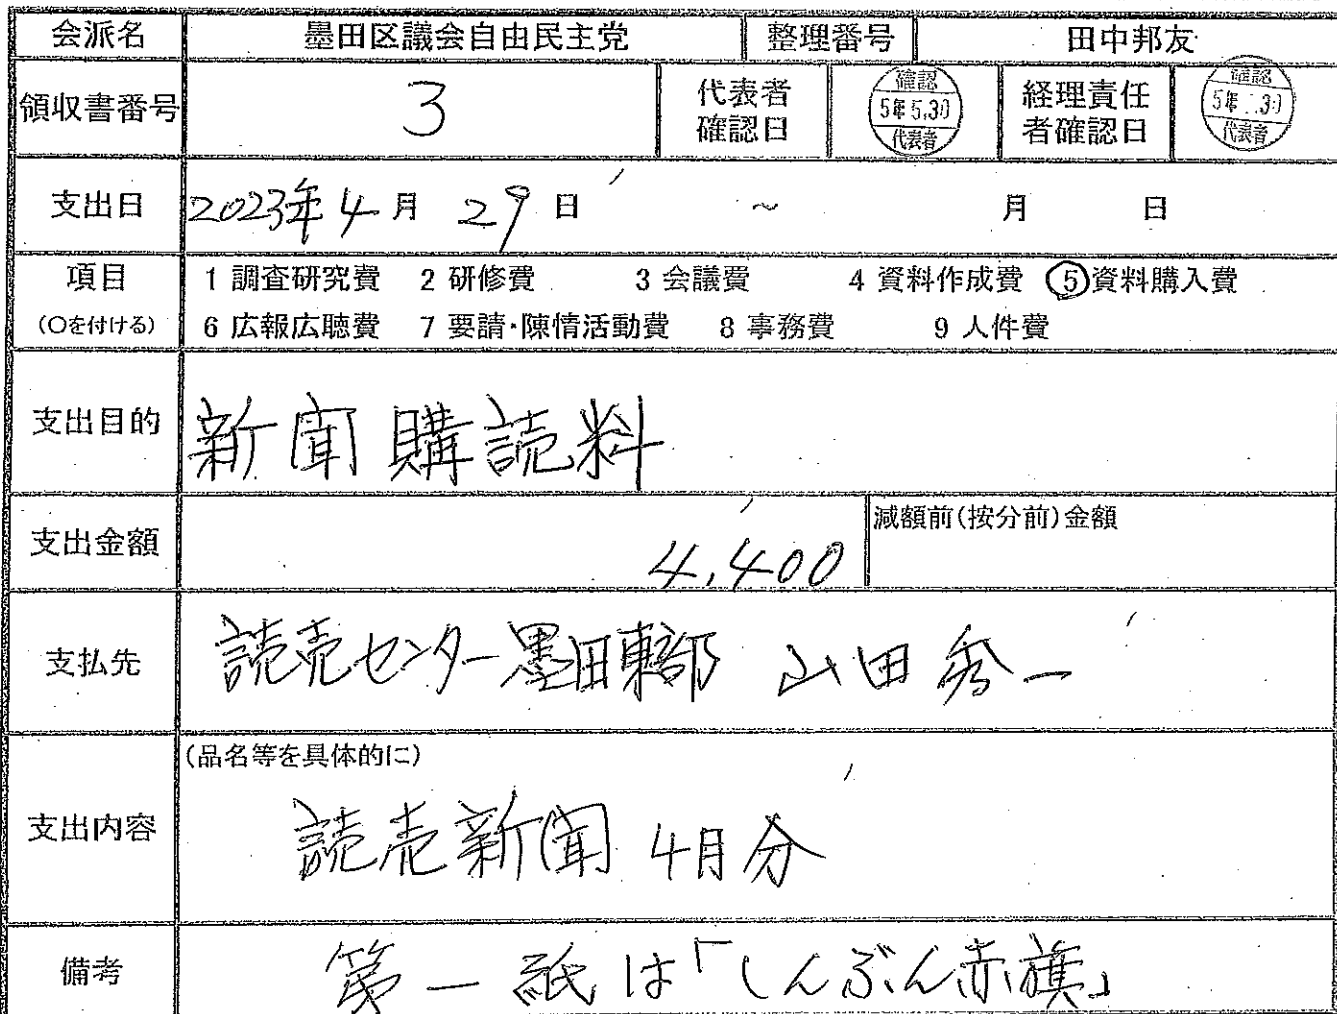 会派名 墨田区議会自由民主党 整理番号 田中邦友
領収書番号 3 代表者確認日 確認 5年5.30 代表者 経理責任者確認日 確認 5年 .30 代表者
支出日 2023年 4月 29日 ~ 月 日
項目 1 調査研究費 2 研修費 3 会議費 4 資料作成費 5 資料購入費
(○を付ける) 6 広報広聴費 7 要請・陳情活動費 8 事務費 9 人件費
支出目的 新聞購読料
支出金額 4,400 減額前(按分前)金額
支払先 読売センター墨田東部 山田秀一
(品名等を具体的に)
支出内容 読売新聞 4月分
備考 第一紙は「しんぶん赤旗」